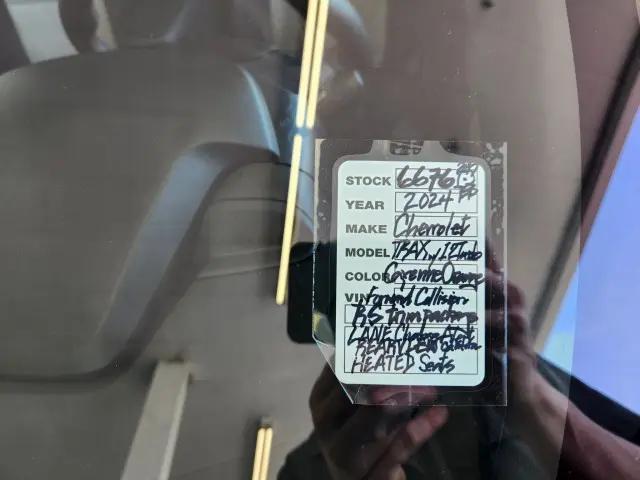 STOCK 6676
YEAR 2024
MAKE Chevrolet
MODEL TRAX w/ 1.2 Turbo
COLOR Cayenne Orange
VIN Forward Collision
RS Trim package
LANE Change Alert
REAR
HEATED Seats